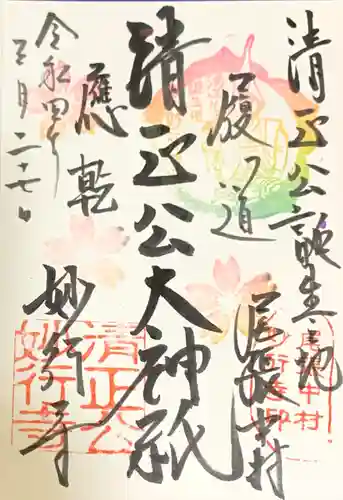 清正公誕生之地
尾張中村
履道
應乾
清正公大神祇
令和四年
三月二十七日
妙行寺
清正公
妙行寺
尾張中村
妙行寺印